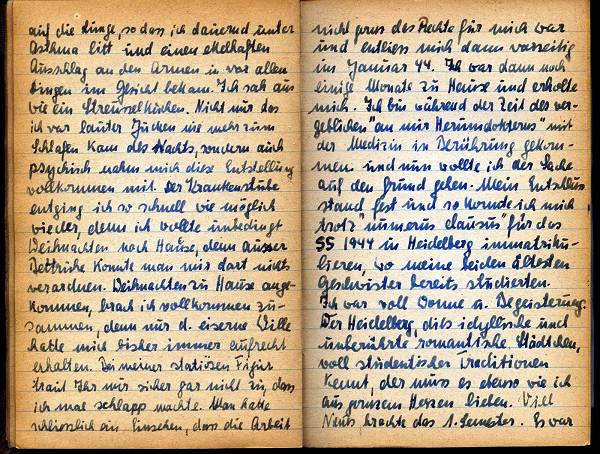 auf die Lunge, so dass ich dauernd unter
Asthma litt und einen ekelhaften
Ausschlag an den Armen u. vor allen
Dingen im Gesicht bekam. Ich sah aus
wie ein Streusselkuchen. Nicht nur das
ich vor lauter Jucken nie mehr zum
Schlafen kam des Nachts, sondern auch
psychisch nahm mich diese Entstellung
vollkommen mit. Der Krankenstube
entging ich so schnell wie möglich
wieder, denn ich wollte unbedingt
Weihnachten nach Hause, denn ausser
Bettruhe konnte man mir dort nichts
verordnen. Weihnachten zu Hause ange-
kommen, brach ich vollkommen zu-
sammen, denn nur d. eiserne Wille
hatte mich bisher immer aufrecht
erhalten. Bei meiner statiösen Figur
traut Ihr mir sicher gar nicht zu, dass
ich mal schlapp machte. Man hatte
schliesslich ein Einsehen, dass die Arbeit
nicht grus das Rechte für mich war
und entliess mich dann vorzeitig
im Januar 44. Ich war dann noch
einige Monate zu Hause und erholte
mich. Ich bin während der Zeit des ver-
geblichen "an mir Herumdokterns" mit
der Medizin in Berührung gekom-
men und nun wollte ich der Sache
auf den Grund gehen. Mein Entschluss
stand fest und so konnte ich mich
trotz "numerus clausus" für das
SS 1944 in Heidelberg immatriku-
lieren, wo meine beiden ältesten
Geschwister bereits studierten.
Ich war voll Wonne u. Begeisterung.
Wer Heidelberg, dies idyllische und
unberührte romantische Städtchen,
voll studentischer Traditionen
kennt, der muss es ebenso wie ich
aus ganzem Herzen lieben. Viel
Neues brachte das 1. Semester. Es war